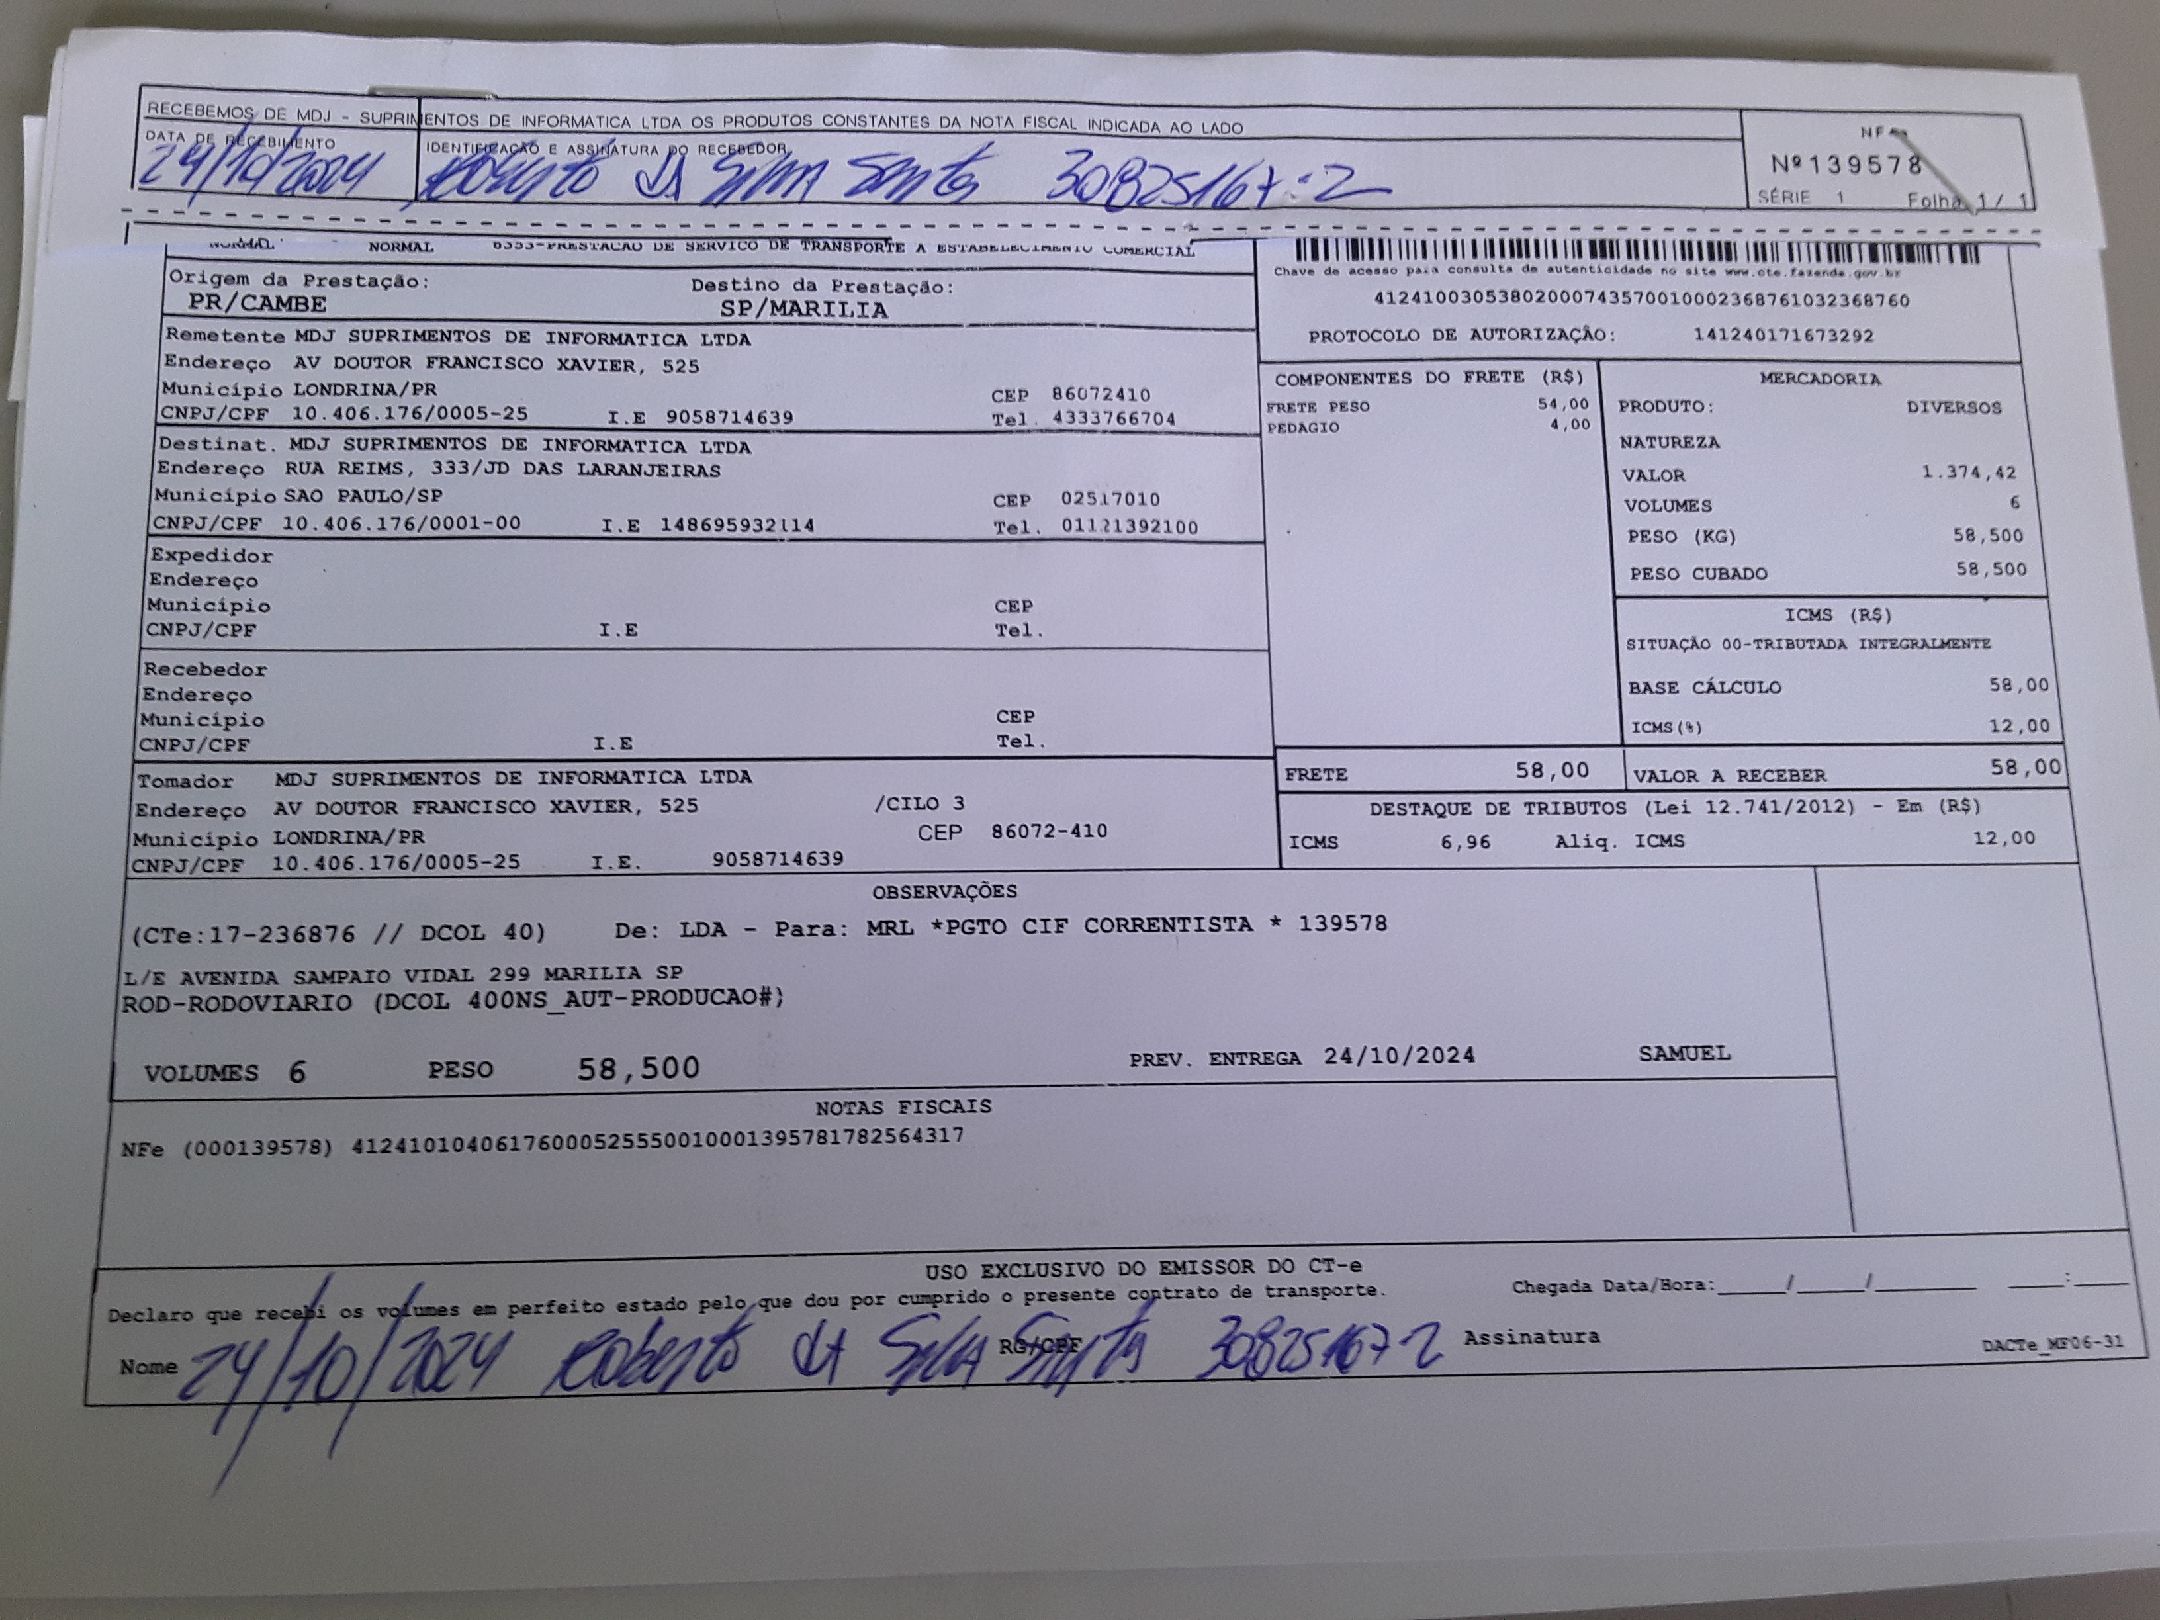 RECEBEMOS DE MDJ - SUPRIMENTOS DE INFORMATICA LTDA OS PRODUTOS CONSTANTES DA NOTA FISCAL INDICADA AO LADO
DATA DE RECEBIMENTO
IDENTIFICAÇÃO E ASSINATURA DO RECEBEDOR
24/10/2024 Roberto da Silva Santos 30825167-2
NF
Nº 139578
SÉRIE 1 Folha 1 / 1
NORMAL NORMAL 6353-PRESTACAO DE SERVICO DE TRANSPORTE A ESTABELECIMENTO COMERCIAL
Origem da Prestação: Destino da Prestação:
PR/CAMBE SP/MARILIA
Chave de acesso para consulta de autenticidade no site www.cte.fazenda.gov.br
41241003053802000743570010002368761032368760
PROTOCOLO DE AUTORIZAÇÃO: 141240171673292
Remetente MDJ SUPRIMENTOS DE INFORMATICA LTDA
Endereço AV DOUTOR FRANCISCO XAVIER, 525
Município LONDRINA/PR CEP 86072410
CNPJ/CPF 10.406.176/0005-25 I.E 9058714639 Tel. 4333766704
Destinat. MDJ SUPRIMENTOS DE INFORMATICA LTDA
Endereço RUA REIMS, 333/JD DAS LARANJEIRAS
Município SAO PAULO/SP CEP 02517010
CNPJ/CPF 10.406.176/0001-00 I.E 148695932114 Tel. 01121392100
Expedidor
Endereço
Município CEP
CNPJ/CPF I.E Tel.
Recebedor
Endereço
Município CEP
CNPJ/CPF I.E Tel.
Tomador MDJ SUPRIMENTOS DE INFORMATICA LTDA
Endereço AV DOUTOR FRANCISCO XAVIER, 525 /CILO 3
Município LONDRINA/PR CEP 86072-410
CNPJ/CPF 10.406.176/0005-25 I.E. 9058714639
COMPONENTES DO FRETE (R$)
FRETE PESO 54,00
PEDAGIO 4,00
MERCADORIA
PRODUTO: DIVERSOS
NATUREZA
VALOR 1.374,42
VOLUMES 6
PESO (KG) 58,500
PESO CUBADO 58,500
ICMS (R$)
SITUAÇÃO 00-TRIBUTADA INTEGRALMENTE
BASE CÁLCULO 58,00
ICMS(%) 12,00
FRETE 58,00 VALOR A RECEBER 58,00
DESTAQUE DE TRIBUTOS (Lei 12.741/2012) - Em (R$)
ICMS 6,96 Aliq. ICMS 12,00
OBSERVAÇÕES
(CTe:17-236876 // DCOL 40) De: LDA - Para: MRL *PGTO CIF CORRENTISTA * 139578
L/E AVENIDA SAMPAIO VIDAL 299 MARILIA SP
ROD-RODOVIARIO (DCOL 400NS_AUT-PRODUCAO#)
VOLUMES 6 PESO 58,500 PREV. ENTREGA 24/10/2024 SAMUEL
NOTAS FISCAIS
NFe (000139578) 41241010406176000525550010001395781782564317
USO EXCLUSIVO DO EMISSOR DO CT-e
Declaro que recebi os volumes em perfeito estado pelo que dou por cumprido o presente contrato de transporte. Chegada Data/Hora:_____/_____/________ ____:____
Nome 24/10/2024 Roberto da Silva Santos RG/CPF 30825167-2 Assinatura
DACTe_MF06-31